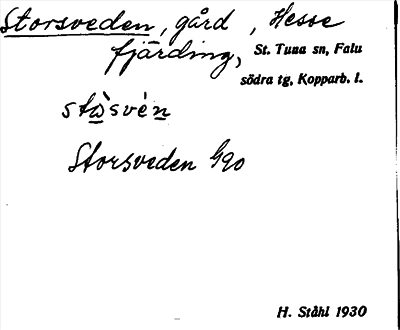 Storsveden, gård, Hesse
fjärding, St. Tuna sn, Falu
södra tg, Kopparb. l.
stɷ̀svèn
Storsveden G90
H. Ståhl 1930